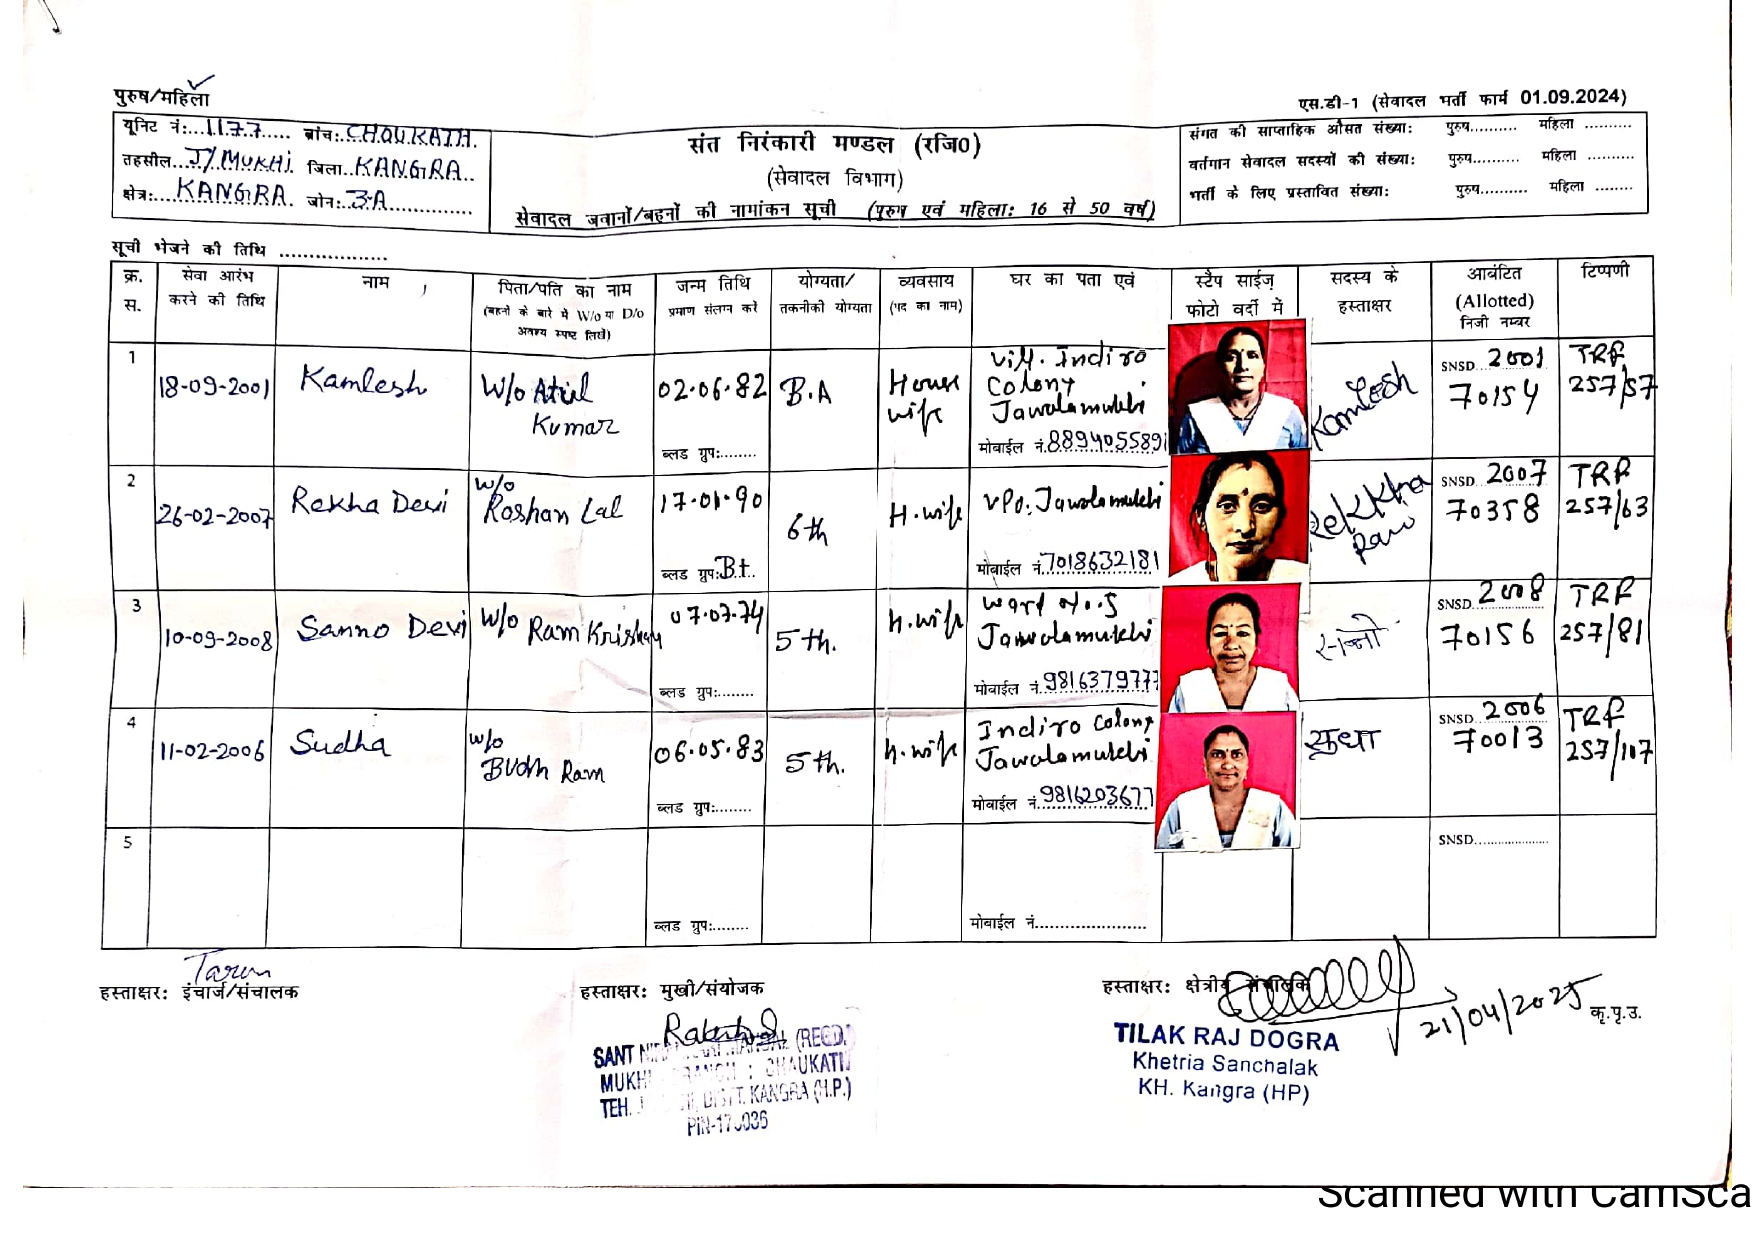 पुरुष/महिला
एस.डी-1 (सेवादल भर्ती फार्म 01.09.2024)
यूनिट नं:...1177..... ब्रांच:..CHOUKATH.
तहसील...J/MUKHI. जिला..KANGRA..
क्षेत्र:....KANGRA. जोन:..3A.............
संत निरंकारी मण्डल (रजि0)
(सेवादल विभाग)
सेवादल जवानों/बहनों की नामांकन सूची (पुरुष एवं महिला: 16 से 50 वर्ष)
संगत की साप्ताहिक औसत संख्या: पुरुष.......... महिला ..........
वर्तमान सेवादल सदस्यों की संख्या: पुरुष.......... महिला ..........
भर्ती के लिए प्रस्तावित संख्या: पुरुष.......... महिला ........
सूची भेजने की तिथि ..................
क्र. स.
सेवा आरंभ करने की तिथि
नाम
पिता/पति का नाम
(बहनों के बारे में W/o या D/o
अवश्य स्पष्ट लिखें)
जन्म तिथि
प्रमाण संलग्न करें
योग्यता/
तकनीकी योग्यता
व्यवसाय
(पद का नाम)
घर का पता एवं
स्टैप साईज़
फोटो वर्दी में
सदस्य के
हस्ताक्षर
आबंटित
(Allotted)
निजी नम्बर
टिप्पणी
1
18-09-2001
Kamlesh
W/o Atul
Kumar
02.06.82
ब्लड ग्रुप:........
B.A
House
wife
Vill. Indira
Colony
Jawalamukhi
मोबाईल नं.8894055891
Kamlesh
SNSD...2001
70154
TRF
257/57
2
26-02-2007
Rekha Devi
w/o
Roshan Lal
17-01-90
ब्लड ग्रुप:B+.
6th
H.wife
VPO. Jawalamukhi
मोबाईल नं.7018632181
SNSD...2007
70358
TRF
257/63
3
10-09-2008
Sanno Devi
W/o Ram Krishan
07.07.74
ब्लड ग्रुप:........
5th.
h.wife
Ward No.5
Jawalamukhi
मोबाईल नं.981637977
सन्नो
SNSD...2008
70156
TRF
257/81
4
11-02-2006
Sudha
w/o
Budh Ram
06.05.83
ब्लड ग्रुप:........
5th.
h.wife
Indira Colony
Jawalamukhi
मोबाईल नं.981620367
सुधा
SNSD...2006
70013
TRF
257/107
5
ब्लड ग्रुप:........
मोबाईल नं.......................
SNSD....................
Tarun
हस्ताक्षर: इंचार्ज/संचालक
हस्ताक्षर: मुखी/संयोजक
SANT MANDAL (REGD.)
MUKHI BRANCH : CHAUKATH
TEH. DISTT. KANGRA (H.P.)
हस्ताक्षर: क्षेत्रीय संचालक
21/04/2025
कृ.पृ.उ.
TILAK RAJ DOGRA
Khetria Sanchalak
KH. Kangra (HP)
Scanned with CamSca